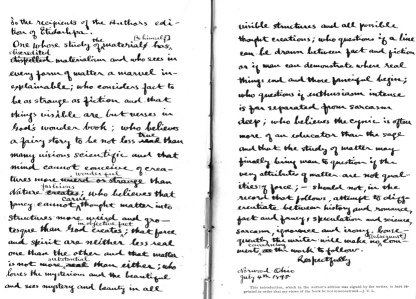 to the recipients of the Authors edi-
tion of Etidorhpa.
One whose study of the materials has,
discredited
dispelled materialism and who sees in
every form of matter a marvel in-
explainable; who considers fact to
be as strange as fiction and that
things visible are but verses in
God's wonder book; who believes
true
a fairy story to be not less than
many visions scientific and that
mind cannot conceive of crea-
wonderful
tures more or strange than
fashions
nature creates; who believes that
fancy cannot thought matter into
structures more weird and gro-
tesque than God creates; that force
and spirit are neither less real
one than the other and that matter
substantial
is not more than either; who
loves the mysterious and the beautiful
and sees mystery and beauty in all
visible structures and all possible
thought creations; who questions if a line
can be drawn between fact and fiction
or if man can demonstrate where real
things end and those fanciful begin;
who questions if enthusiasm intense
is far separated from sarcasm
deep; who believes the cynic is often
more of an educator than the sage
and that the study of matter may
finally bring man to question if the
very attributes of matter are not qual-
ities of force; — should not, in the
record that follows, attempt to diff-
erentiate between history and romance,
fact and fancy, speculation and science,
sarcasm, ignorance and irony,
quently the writer will make no com-
ment, on the work to follow.
Respectfully
Norwood Ohio
July 4th 1895
This introduction, which in the author's edition was signed by the writer, is here